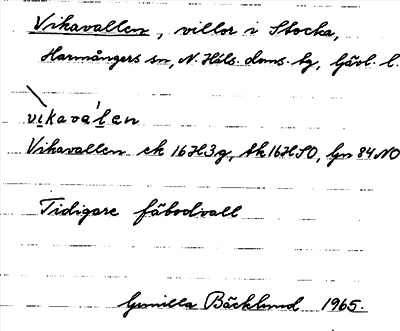 Vikavallen, villor i Stocka,
Harmångers sn, N. Häls. doms. tg, Gävl. l.
vikavàlen
Vikavallen ek 16H3g, tk 16HSO, Gn 84 NO
Tidigare fäbodvall
Gunilla Bäcklund 1965.